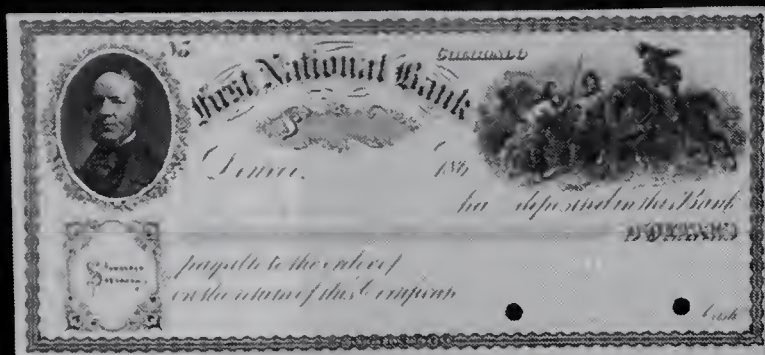 No
First National Bank
Denver, 186
has deposited in this Bank
DOLLARS
payable to the order of
on the return of this Certificate
Cash